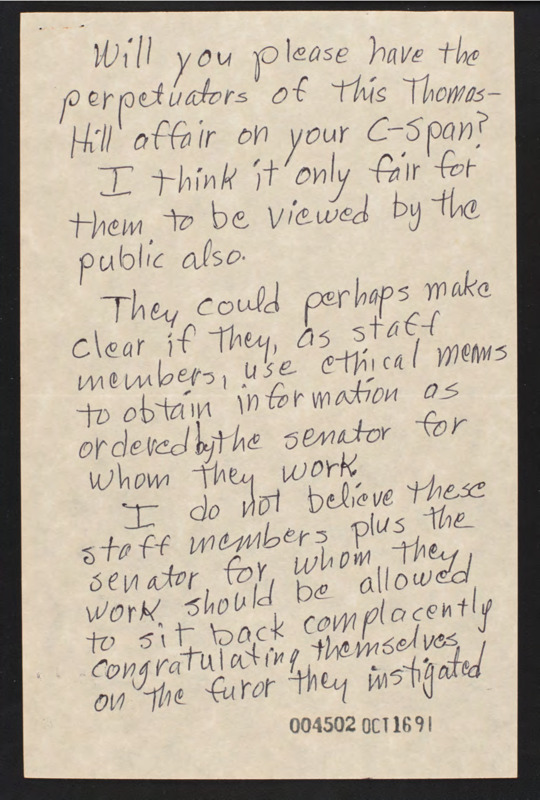 Will you please have the
perpetuators of this Thomas-
Hill affair on your C-Span?
I think it only fair for
them to be viewed by the
public also.
They could perhaps make
clear if they, as staff
members, use ethical means
to obtain information as
ordered by the senator for
whom they work.
I do not believe these
staff members plus the
senator for whom they
work should be allowed
to sit back complacently
congratulating themselves
on the furor they instigated
004502 OCT 16 91